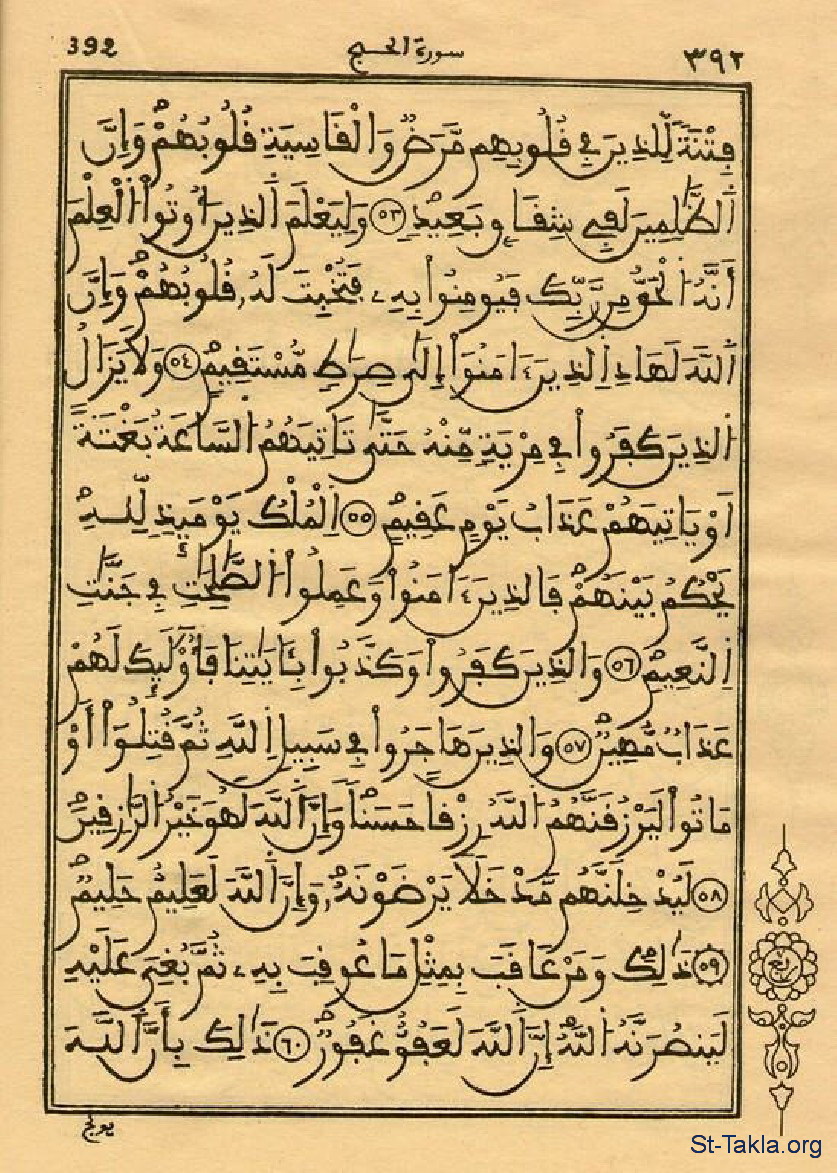 392 سورة الحج ٣٩٢
فِتْنَةً لِّلذِينَ فِي قُلُوبِهِم مَّرَضٌ وَالْقَاسِيَةِ قُلُوبُهُمْ وَإِنَّ
اَلظَّٰلِمِينَ لَفِي شِقَاقٍ بَعِيدٍ ٥٣ وَلِيَعْلَمَ اَلذِينَ أُوتُواْ الْعِلْمَ
أَنَّهُ اُلْحَقُّ مِن رَّبِّكَ فَيُومِنُواْ بِهِۦ فَتُخْبِتَ لَهُۥ قُلُوبُهُمْ وَإِنَّ
اَللَّهَ لَهَادِ اِلذِينَ ءَامَنُواْ إِلَىٰ صِرَٰطٍ مُّسْتَقِيمٍ ٥٤ وَلَا يَزَالُ
اُلذِينَ كَفَرُواْ فِي مِرْيَةٍ مِّنْهُ حَتَّىٰ تَاتِيَهُمُ السَّاعَةُ بَغْتَةً
أَوْ يَاتِيَهُمْ عَذَابُ يَوْمٍ عَقِيمٍ ٥٥ اِلْمُلْكُ يَوْمَئِذٍ لِّلهِ
يَحْكُمُ بَيْنَهُمْ فَالذِينَ ءَامَنُواْ وَعَمِلُواْ الصَّٰلِحَٰتِ فِي جَنَّٰتِ
اِلنَّعِيمِ ٥٦ وَالذِينَ كَفَرُواْ وَكَذَّبُواْ بِـَٔايَٰتِنَا فَأُوْلَٰئِكَ لَهُمْ
عَذَابٌ مُّهِينٌ ٥٧ وَالذِينَ هَاجَرُواْ فِي سَبِيلِ اِللَّهِ ثُمَّ قُتِلُواْ أَوْ
مَاتُواْ لَيَرْزُقَنَّهُمُ اللَّهُ رِزْقًا حَسَنًا وَإِنَّ اَللَّهَ لَهُوَ خَيْرُ الرَّٰزِقِينَ
٥٨ لَيُدْخِلَنَّهُم مَّدْخَلًا يَرْضَوْنَهُۥ وَإِنَّ اَللَّهَ لَعَلِيمٌ حَلِيمٌ
٥٩ ذَٰلِكَ وَمَنْ عَاقَبَ بِمِثْلِ مَا عُوقِبَ بِهِۦ ثُمَّ بُغِيَ عَلَيْهِ
لَيَنصُرَنَّهُ اُللَّهُ إِنَّ اَللَّهَ لَعَفُوٌّ غَفُورٌ ٦٠ ذَٰلِكَ بِأَنَّ اَللَّهَ
يولج
St-Takla.org